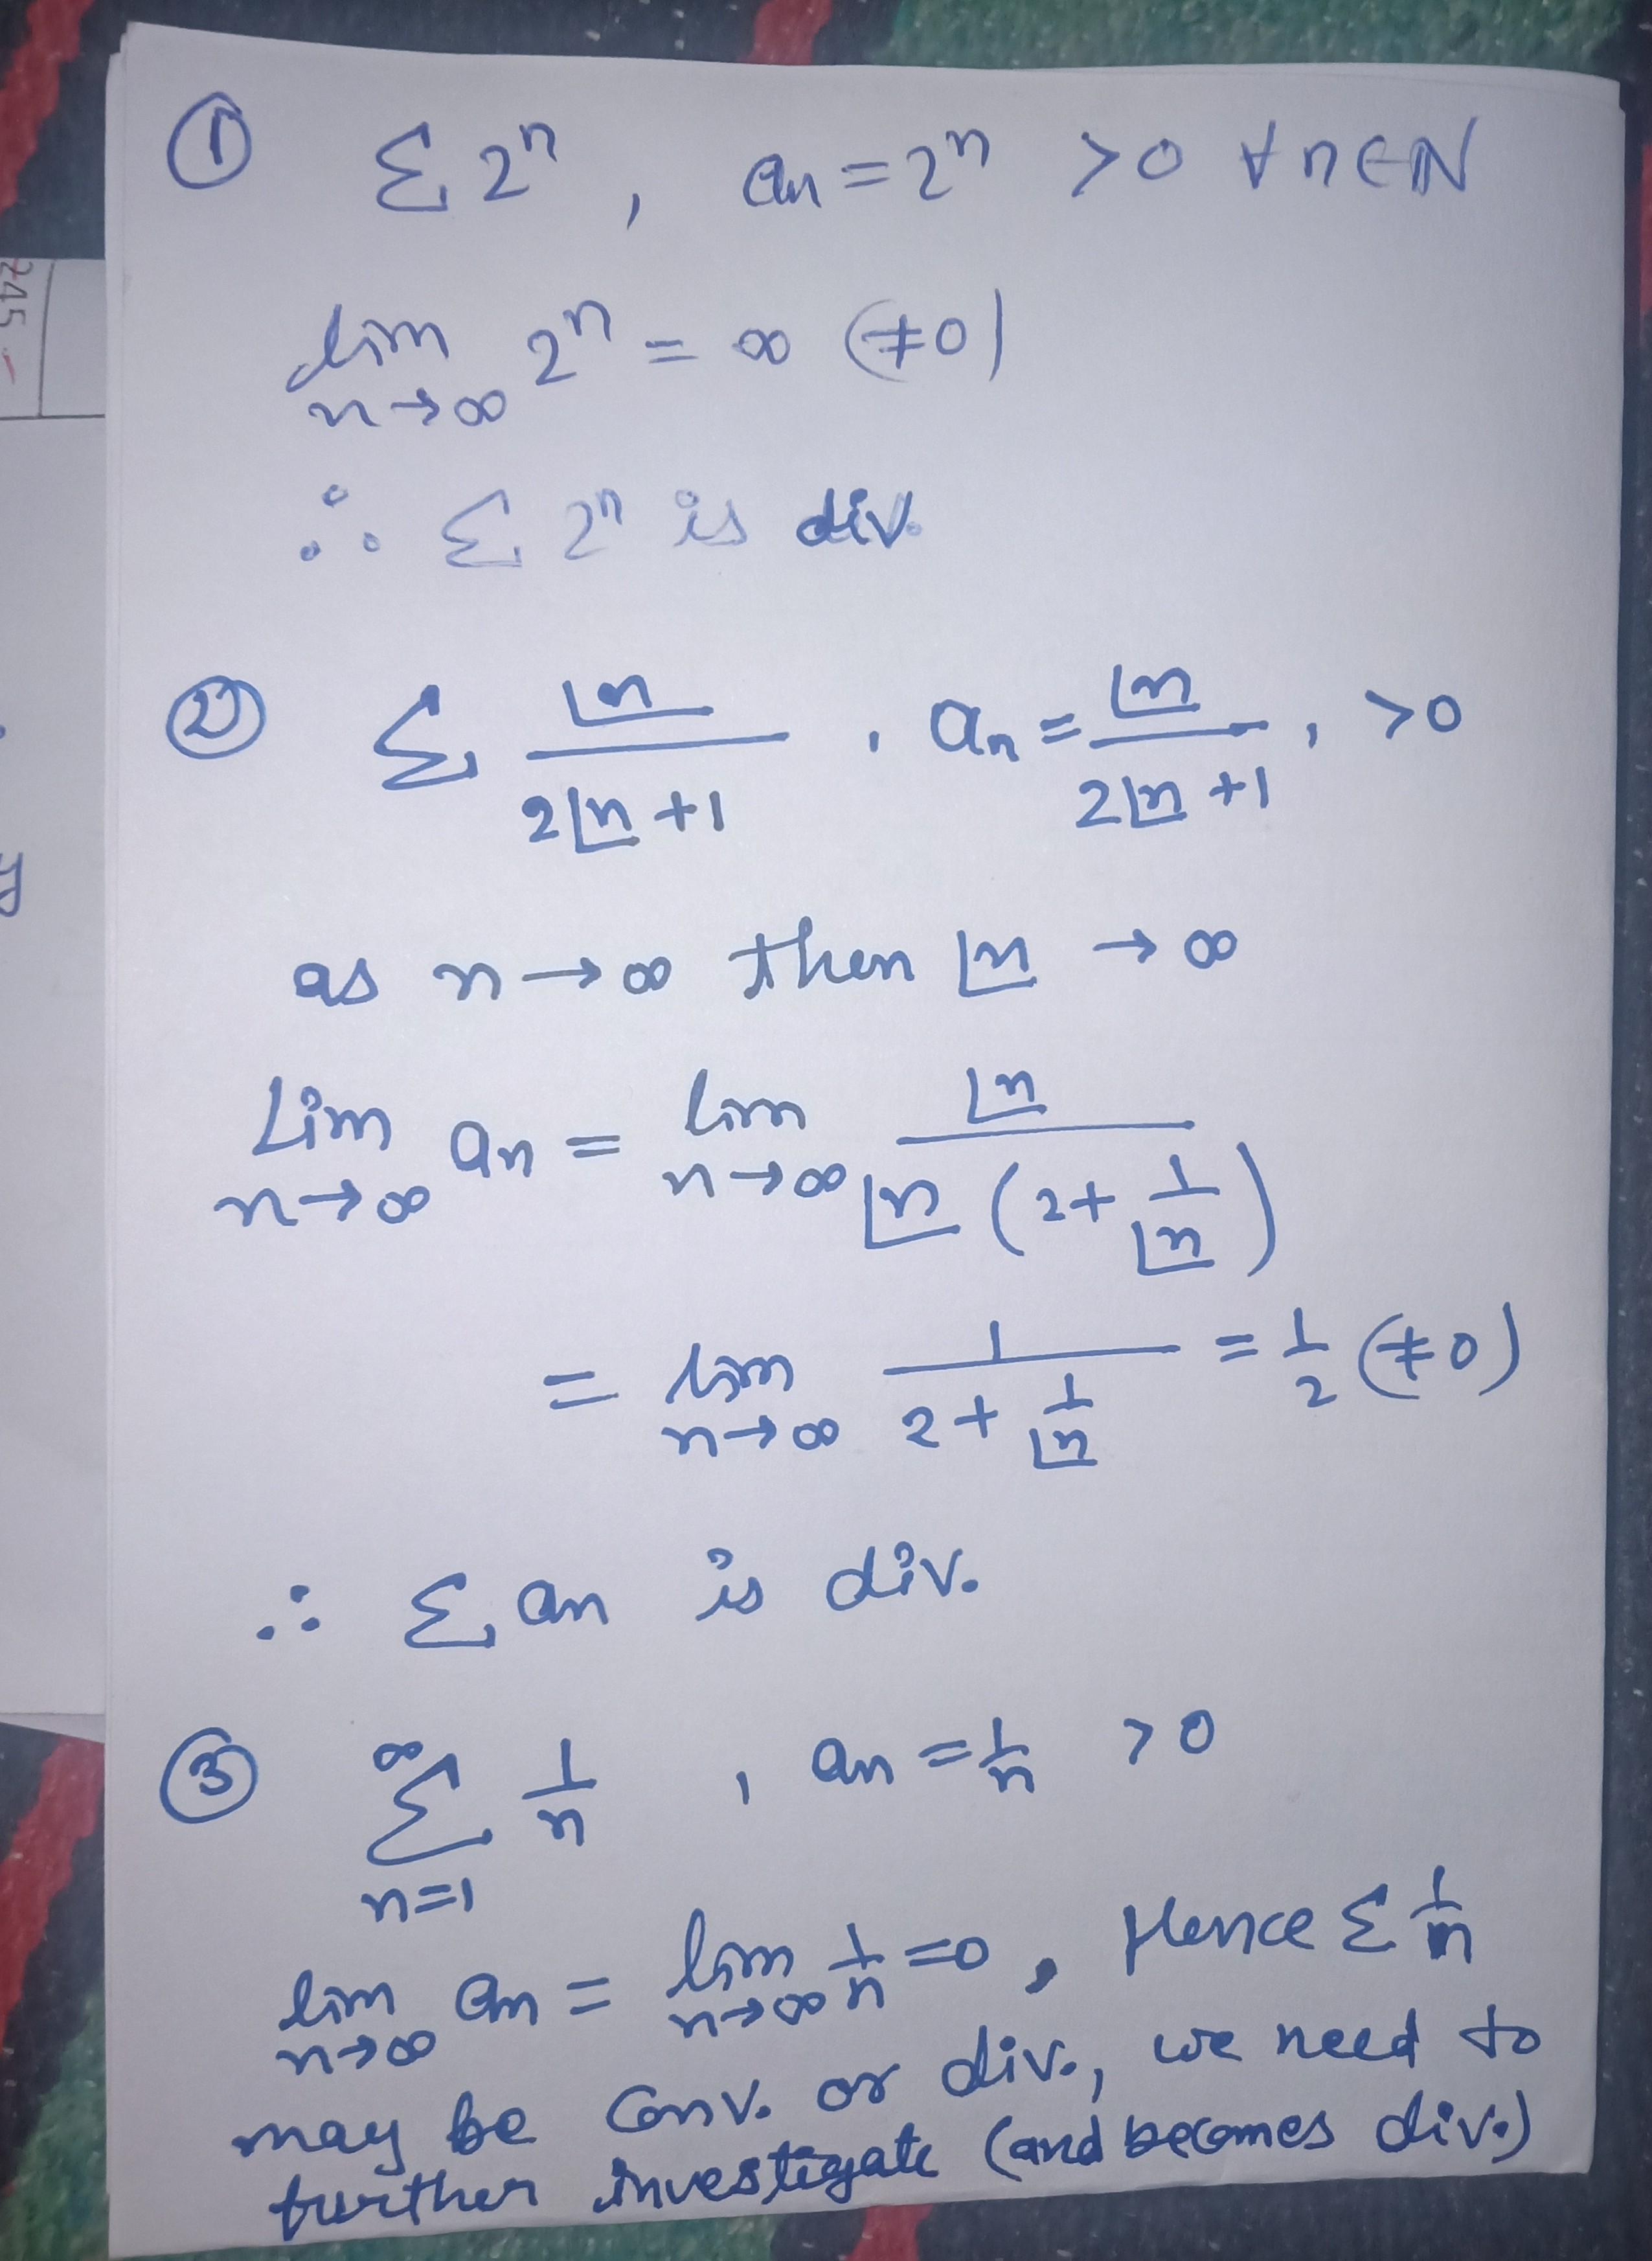 ① Σ 2ⁿ , aₙ = 2ⁿ > 0 ∀ n ∈ ℕ
lim_{n→∞} 2ⁿ = ∞ (≠0)
∴ Σ 2ⁿ is div.
② Σ |n̲ / (2|n̲ + 1) , aₙ = |n̲ / (2|n̲ + 1) , > 0
as n → ∞ then |n̲ → ∞
Lim_{n→∞} aₙ = lim_{n→∞} |n̲ / (|n̲ (2 + 1/|n̲))
= lim_{n→∞} 1 / (2 + 1/|n̲) = 1/2 (≠0)
∴ Σ aₙ is div.
③ Σ_{n=1}^{∞} 1/n , aₙ = 1/n > 0
lim_{n→∞} aₙ = lim_{n→∞} 1/n = 0 , Hence Σ 1/n
may be Conv. or div., we need to
further investigate (and becomes div.)
245 -